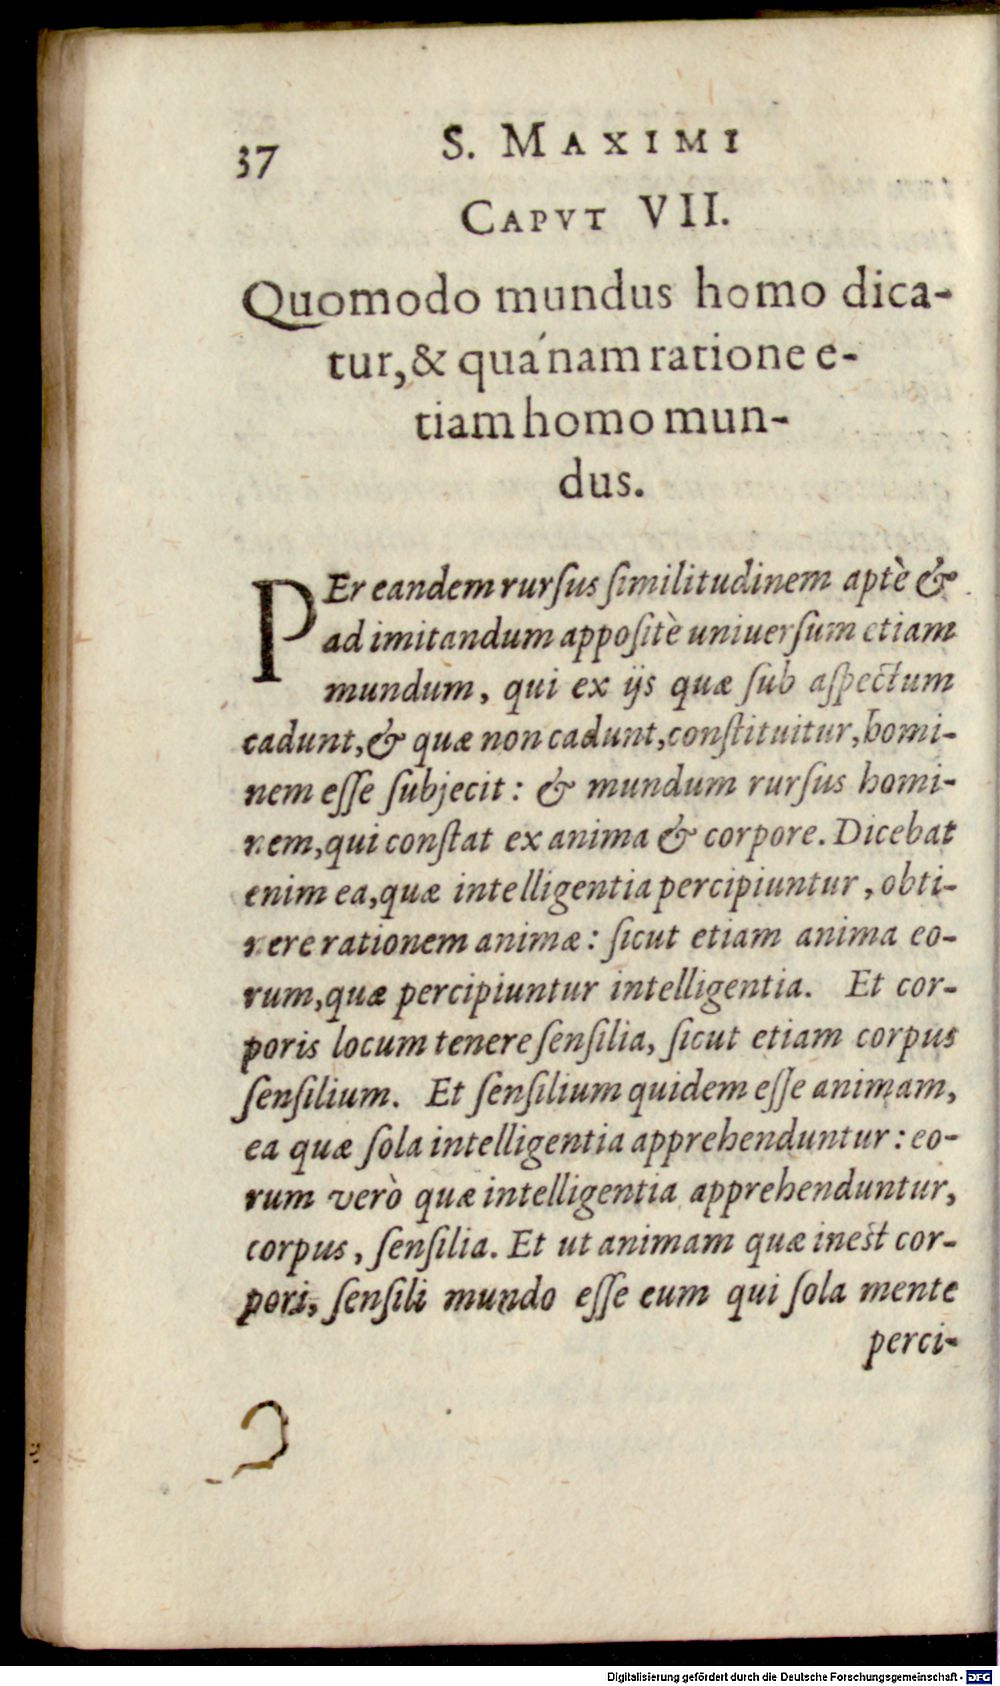 37
S. MAXIMI
CAPVT VII.
Quomodo mundus homo dica-
tur, & quánam ratione e-
tiam homo mun-
dus.
PEr eandem rurſus ſimilitudinem aptè &
ad imitandum appoſitè uniuerſum etiam
mundum, qui ex ijs quæ ſub aſpectum
cadunt, & quæ non cadunt, conſtituitur, homi-
nem eſſe ſubjecit: & mundum rurſus homi-
nem, qui conſtat ex anima & corpore. Dicebat
enim ea, quæ intelligentia percipiuntur, obti-
nere rationem animæ: ſicut etiam anima eo-
rum, quæ percipiuntur intelligentia. Et cor-
poris locum tenere ſenſilia, ſicut etiam corpus
ſenſilium. Et ſenſilium quidem eſſe animam,
ea quæ ſola intelligentia apprehenduntur: eo-
rum verò quæ intelligentia apprehenduntur,
corpus, ſenſilia. Et ut animam quæ inest cor-
pori, ſenſili mundo eſſe eum qui ſola mente
perci-
Digitalisierung gefördert durch die Deutsche Forschungsgemeinschaft - DFG